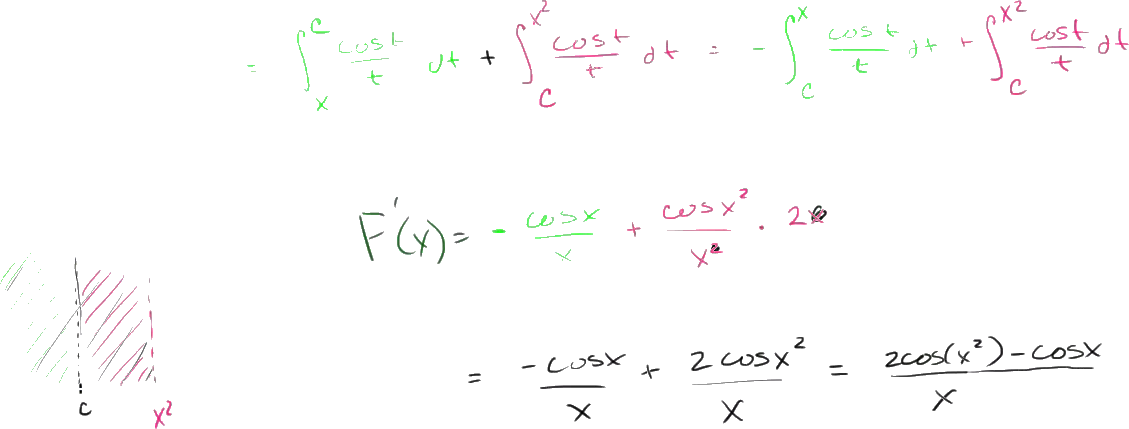 = ∫_x^c cost/t dt + ∫_c^{x²} cost/t dt = - ∫_c^x cost/t dt + ∫_c^{x²} cost/t dt
F'(x) = - cosx/x + cosx²/x² · 2x
= -cosx/x + 2cosx²/x = 2cos(x²)-cosx/x
c x²